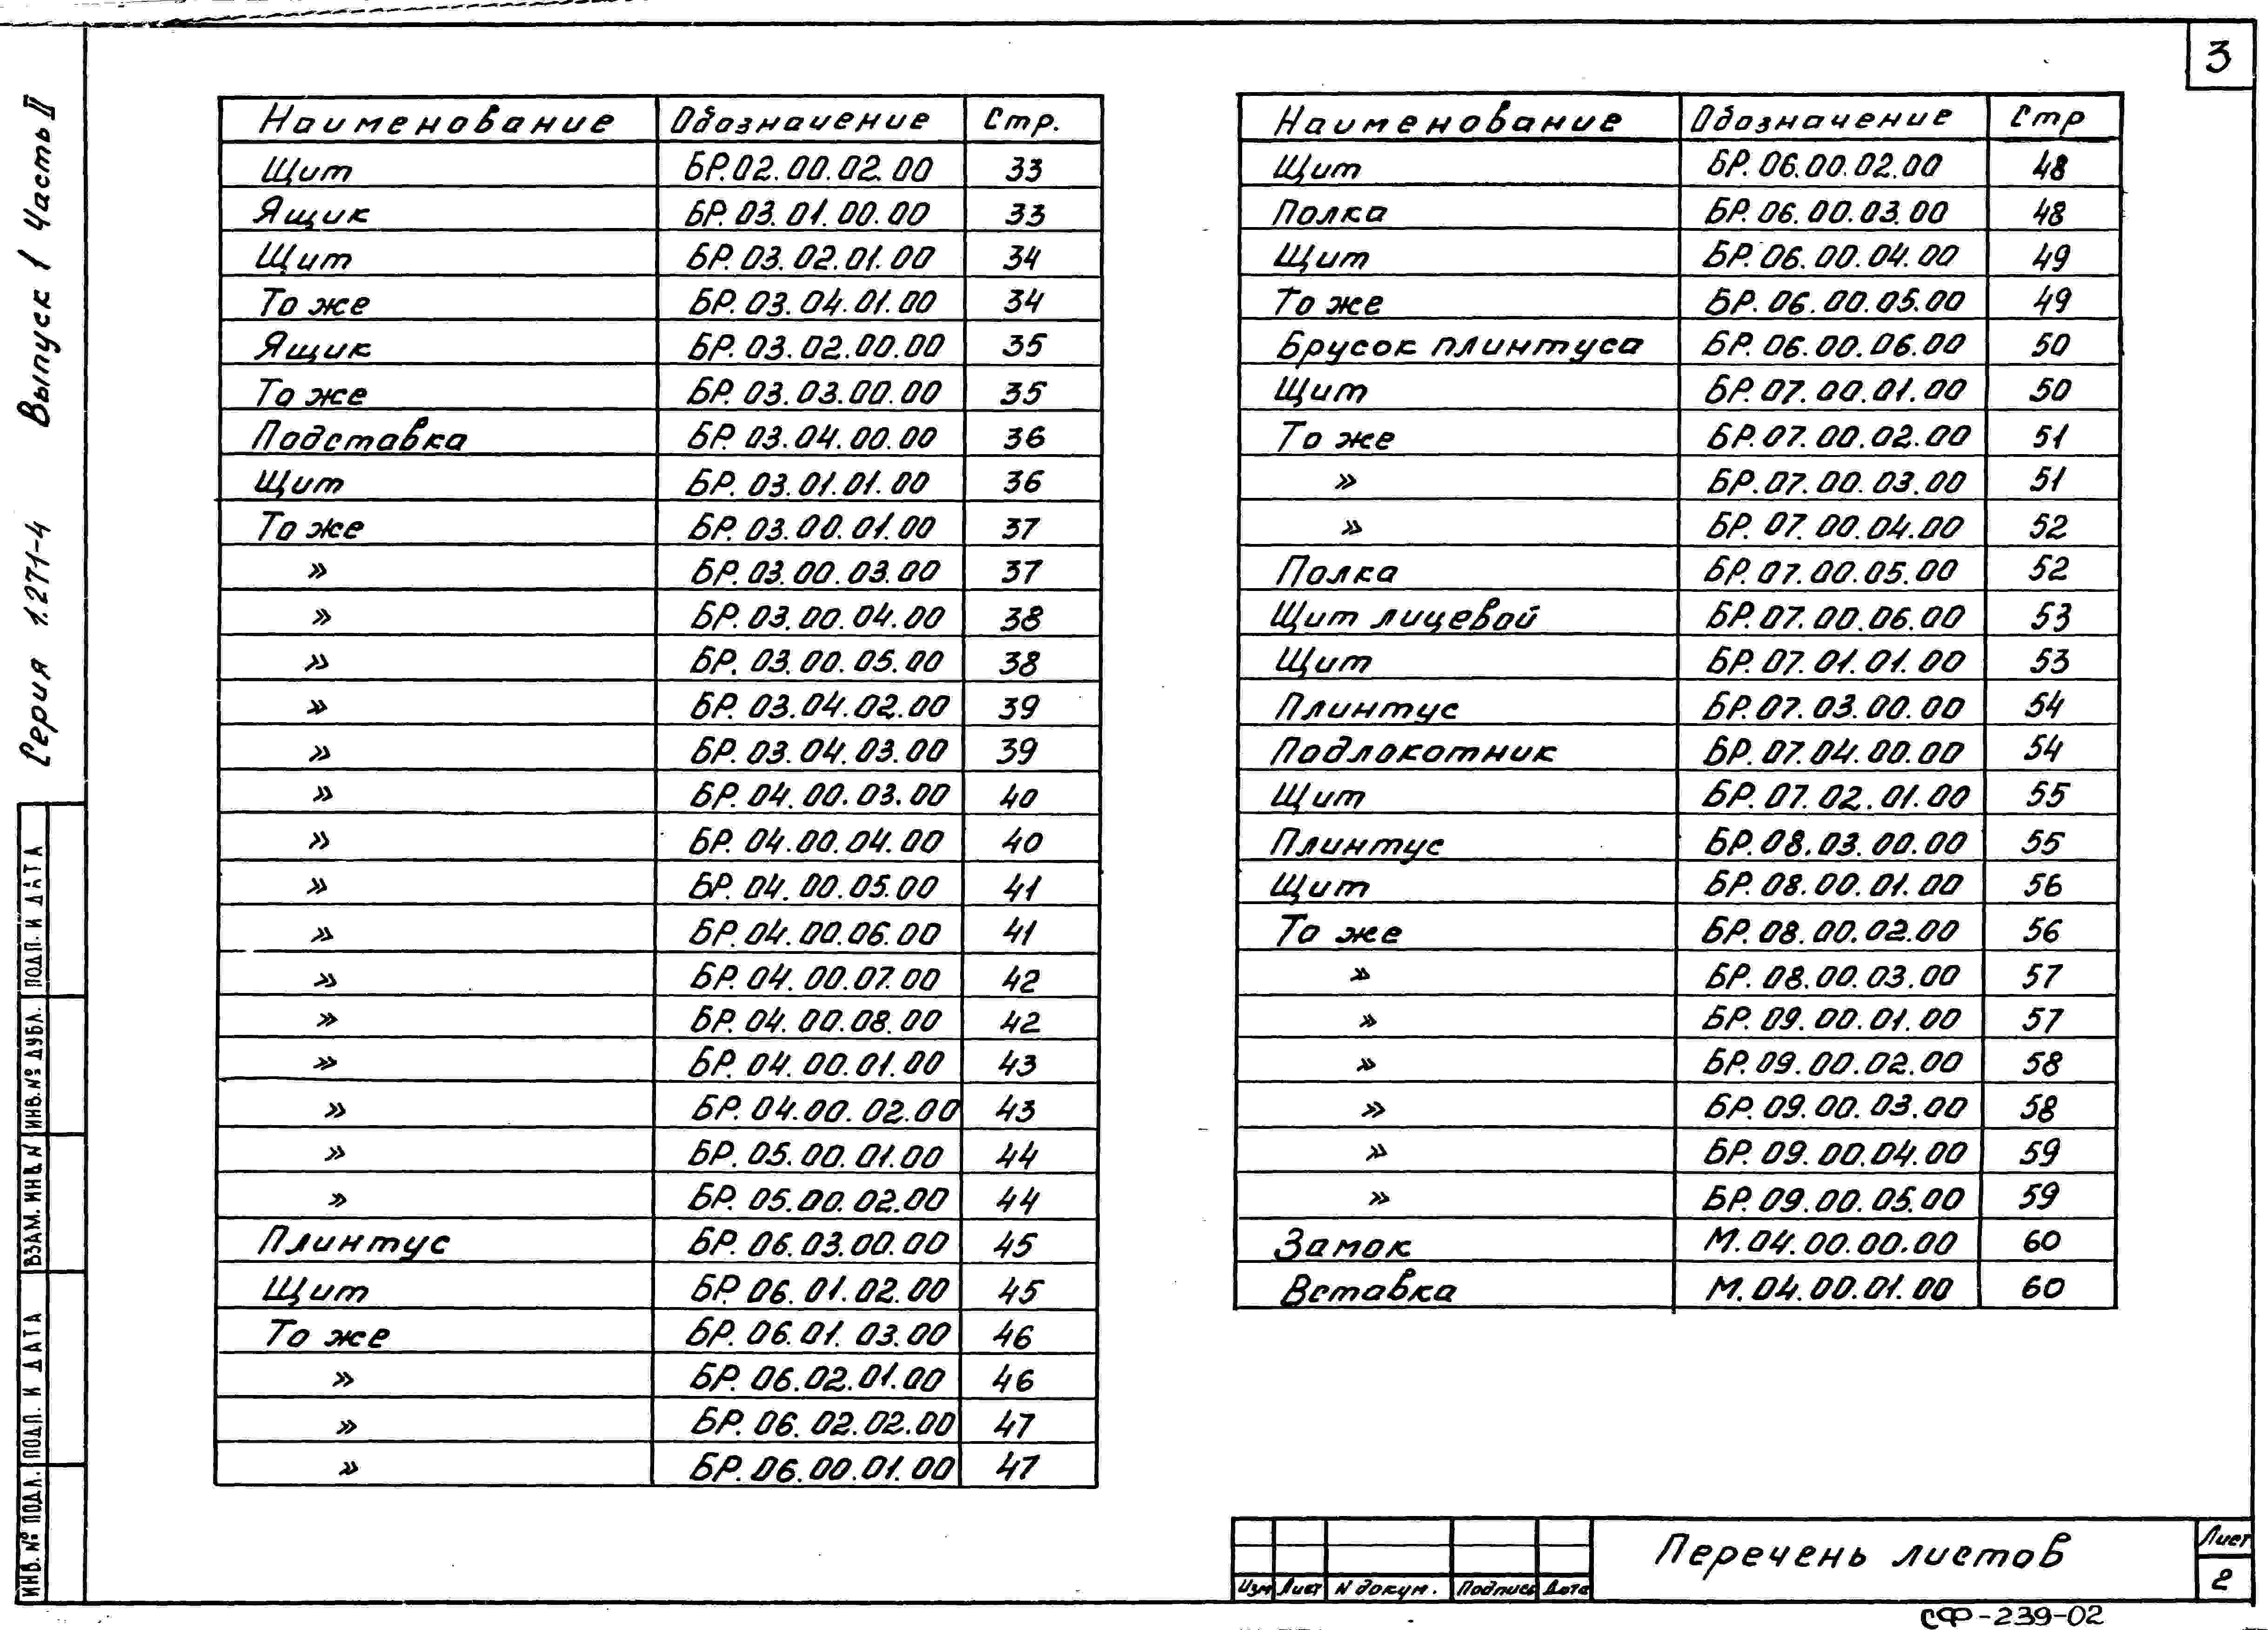 3
Серия 1.271-4 Выпуск 1 Часть II
Наименование Обозначение Стр.
Щит БР.02.00.02.00 33
Ящик БР.03.01.00.00 33
Щит БР.03.02.01.00 34
То же БР.03.04.01.00 34
Ящик БР.03.02.00.00 35
То же БР.03.03.00.00 35
Подставка БР.03.04.00.00 36
Щит БР.03.01.01.00 36
То же БР.03.00.01.00 37
» БР.03.00.03.00 37
» БР.03.00.04.00 38
» БР.03.00.05.00 38
» БР.03.04.02.00 39
» БР.03.04.03.00 39
» БР.04.00.03.00 40
» БР.04.00.04.00 40
» БР.04.00.05.00 41
» БР.04.00.06.00 41
» БР.04.00.07.00 42
» БР.04.00.08.00 42
» БР.04.00.01.00 43
» БР.04.00.02.00 43
» БР.05.00.01.00 44
» БР.05.00.02.00 44
Плинтус БР.06.03.00.00 45
Щит БР.06.01.02.00 45
То же БР.06.01.03.00 46
» БР.06.02.01.00 46
» БР.06.02.02.00 47
» БР.06.00.01.00 47
Наименование Обозначение Стр
Щит БР.06.00.02.00 48
Полка БР.06.00.03.00 48
Щит БР.06.00.04.00 49
То же БР.06.00.05.00 49
Брусок плинтуса БР.06.00.06.00 50
Щит БР.07.00.01.00 50
То же БР.07.00.02.00 51
» БР.07.00.03.00 51
» БР.07.00.04.00 52
Полка БР.07.00.05.00 52
Щит лицевой БР.07.00.06.00 53
Щит БР.07.01.01.00 53
Плинтус БР.07.03.00.00 54
Подлокотник БР.07.04.00.00 54
Щит БР.07.02.01.00 55
Плинтус БР.08.03.00.00 55
Щит БР.08.00.01.00 56
То же БР.08.00.02.00 56
» БР.08.00.03.00 57
» БР.09.00.01.00 57
» БР.09.00.02.00 58
» БР.09.00.03.00 58
» БР.09.00.04.00 59
» БР.09.00.05.00 59
Замок М.04.00.00.00 60
Вставка М.04.00.01.00 60
ИНВ. № ПОДЛ. ПОДП. И ДАТА ВЗАМ. ИНВ. N ИНВ. № ДУБЛ. ПОДП. И ДАТА
Изм Лист N докум. Подпись Дата
Перечень листов
Лист
2
СФ-239-02